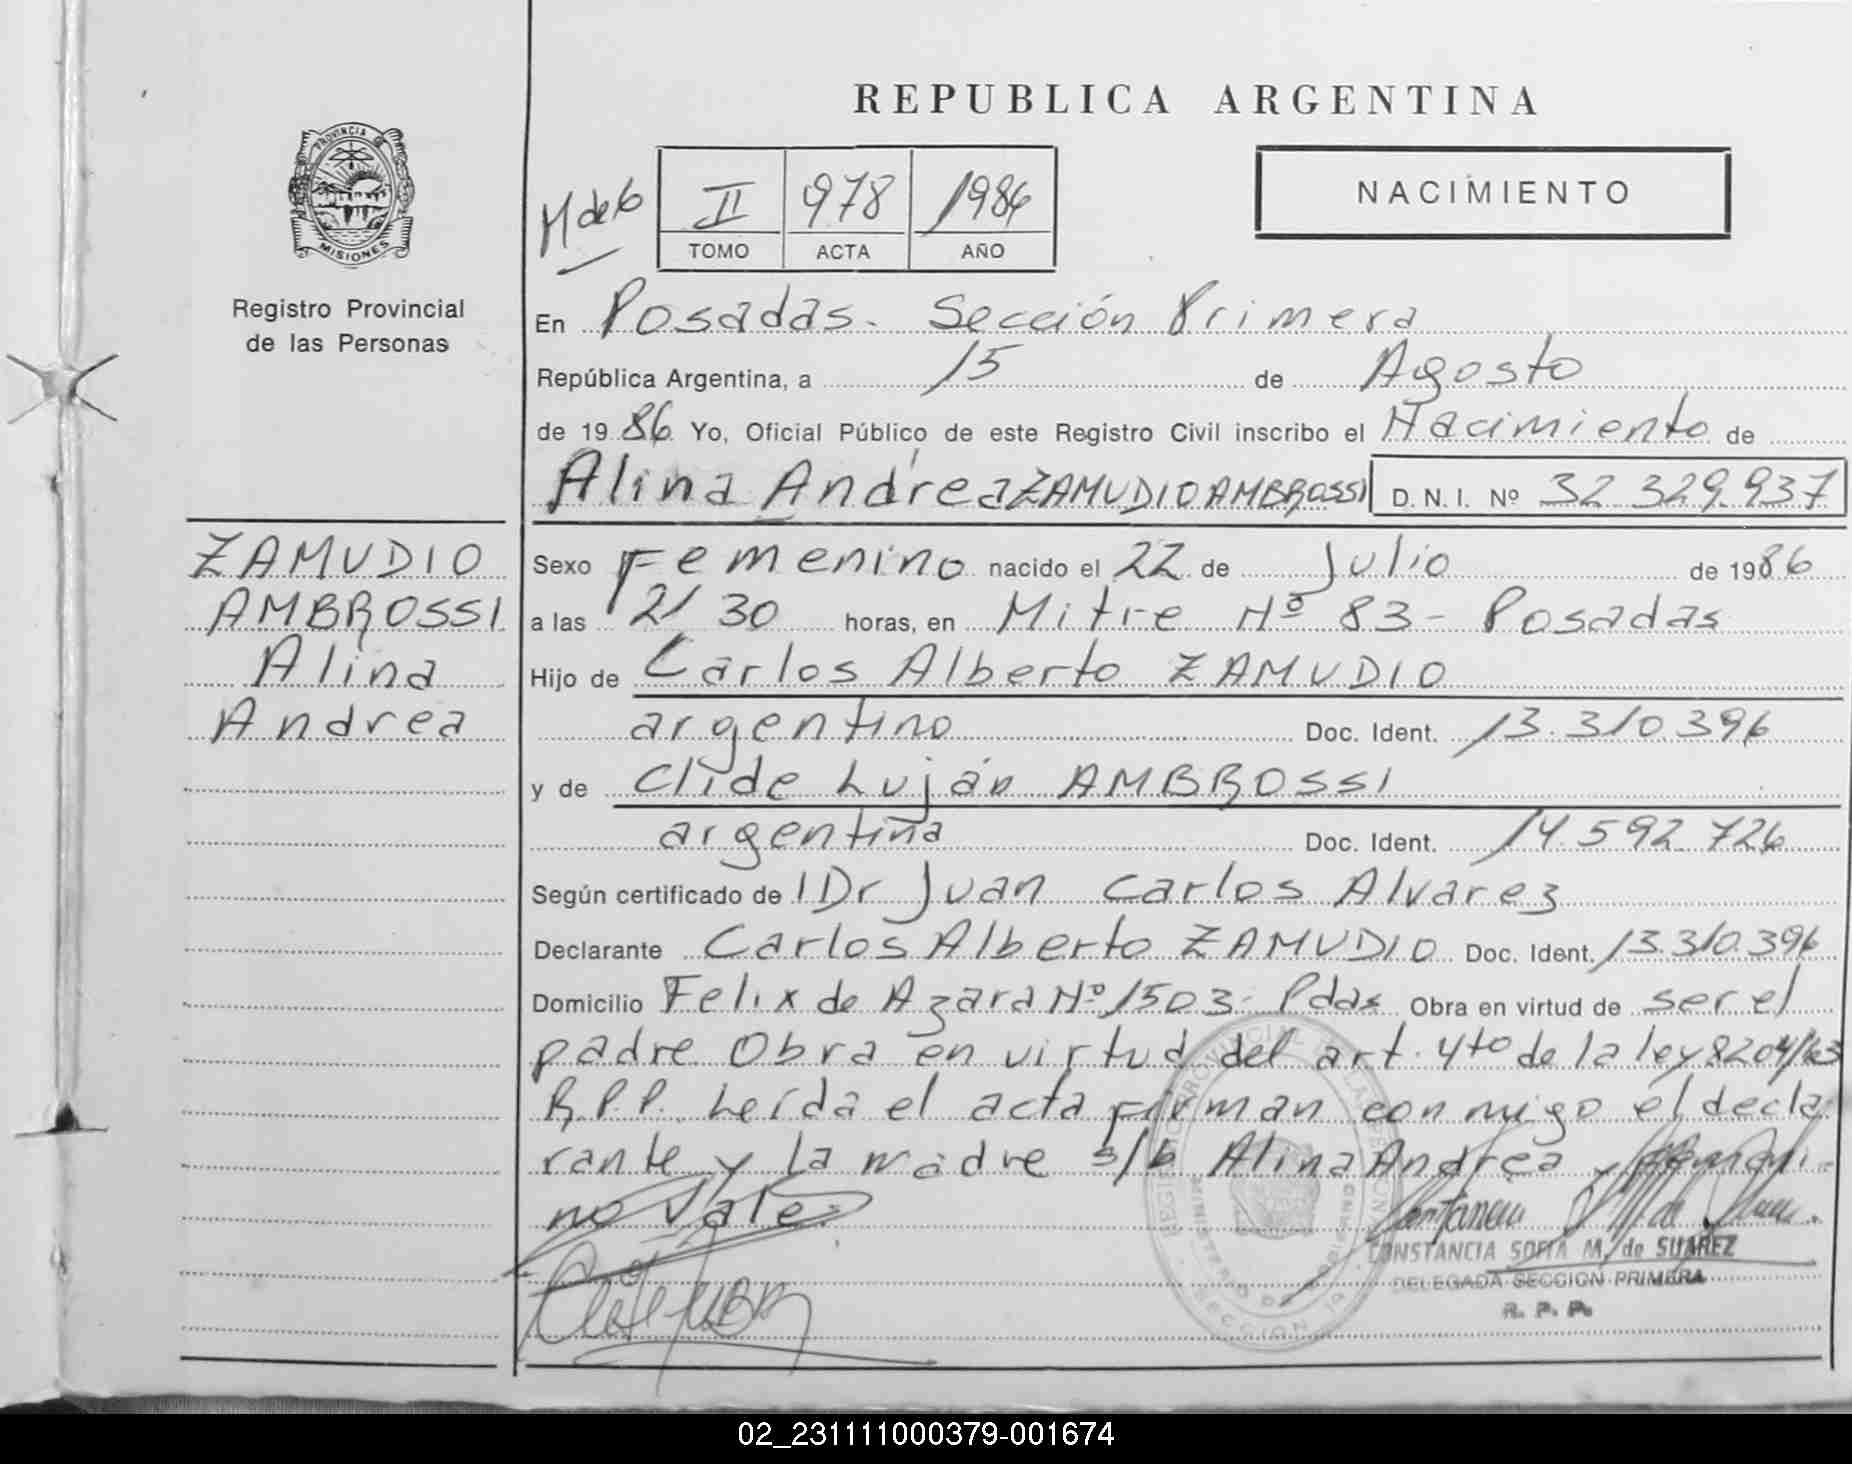 REPUBLICA ARGENTINA
PROVINCIA DE
MISIONES
Registro Provincial
de las Personas
II 978 1986
TOMO ACTA AÑO
NACIMIENTO
En Posadas. Sección Primera
República Argentina, a 15 de Agosto
de 1986 Yo, Oficial Público de este Registro Civil inscribo el Nacimiento de
Alina Andrea ZAMUDIO AMBROSSI D.N.I. Nº 32 329.937
ZAMUDIO
AMBROSSI
Alina
Andrea
Sexo Femenino nacido el 22 de Julio de 1986
a las 21 30 horas, en Mitre Nº 83 - Posadas
Hijo de Carlos Alberto ZAMUDIO
argentino Doc. Ident. 13.310.396
y de Clide Luján AMBROSSI
argentina Doc. Ident. 14.592.726
Según certificado de Dr Juan Carlos Alvarez
Declarante Carlos Alberto ZAMUDIO Doc. Ident. 13.310.396
Domicilio Felix de Azara Nº 1503 - Pdas Obra en virtud de ser el
padre Obra en virtud del art. 4to de la ley 8204/63
R.P.P. Leída el acta firman conmigo el decla
rante y la madre s/b Alina Andrea y
no Vale
CONSTANCIA SOFIA M. de SUAREZ
DELEGADA SECCION PRIMERA
R. P. P.
02_231111000379-001674